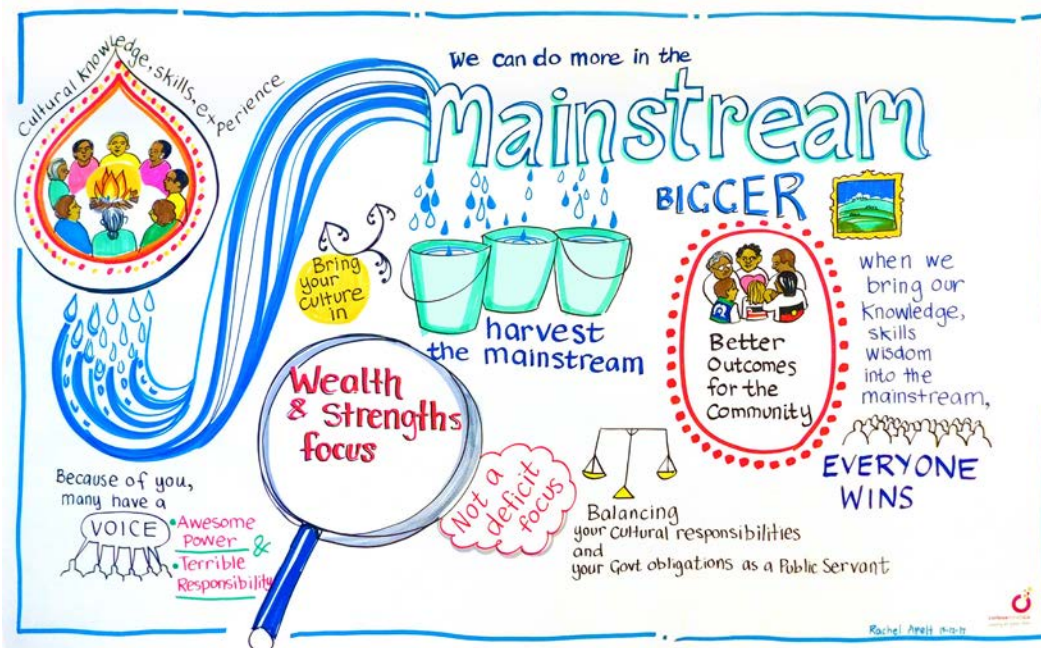 Cultural knowledge, skills, experience
We can do more in the
Mainstream
Bring
your
culture
in
harvest
the mainstream
BIGGER
Better
Outcomes
for the
Community
when we
bring our
knowledge,
skills
wisdom
into the
mainstream,
EVERYONE
WINS
Wealth
& Strengths
focus
Not a
deficit
focus
Because of you,
many have a
VOICE
• Awesome
Power &
• Terrible
Responsibility
Balancing
your cultural responsibilities
and
your Govt obligations as a Public Servant
Rachel